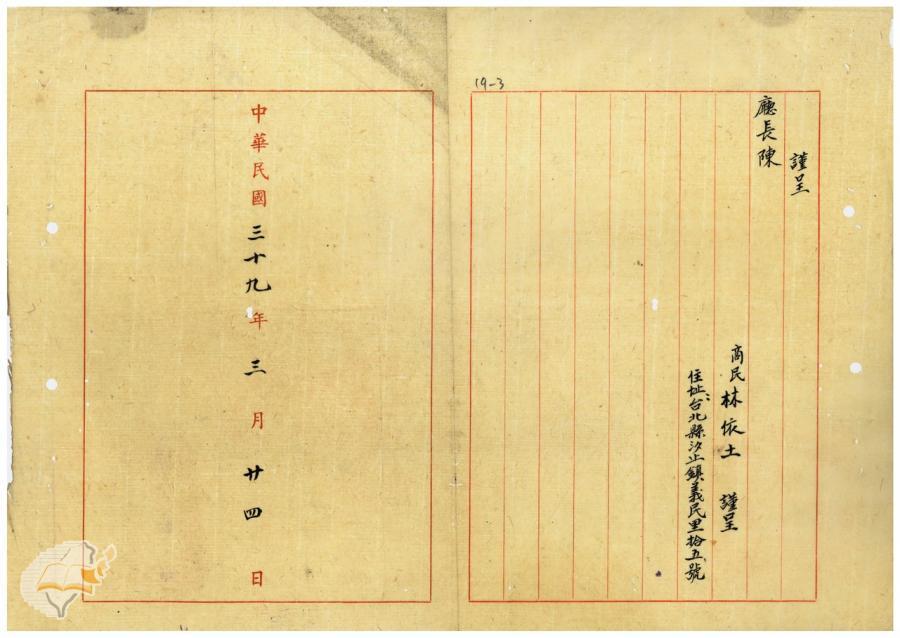 19-3
謹呈
廳長陳
商民林依土 謹呈
住址:台北縣汐止鎮義民里拾五號
中華民國三十九年三月廿四日